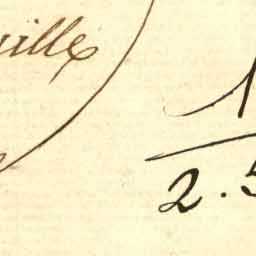 uille
1
2.5